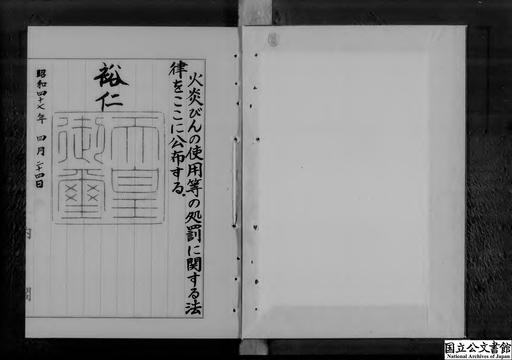 火炎びんの使用等の処罰に関する法
律をここに公布する。
裕仁
天皇
御璽
昭和四十七年 四月二十四日
国立公文書館
National Archives of Japan